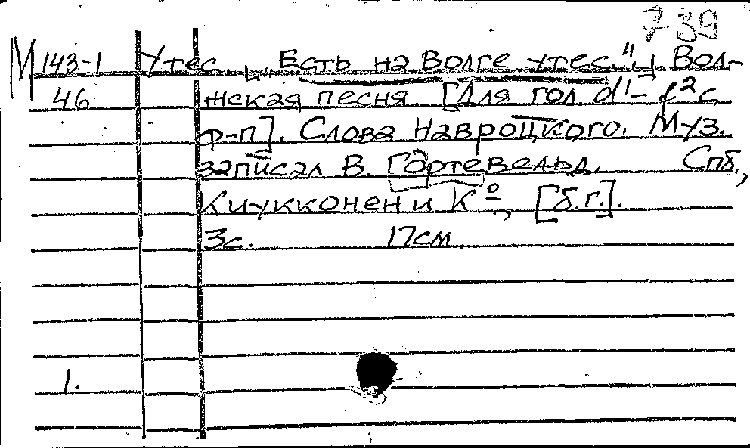 739
М 143-1 Утес. [„Есть на Волге утес"]. Вол-
46 жская песня [Для гол. d¹-f² с
ф-п]. Слова Навроцкого. Муз.
записал В. Гартевельд. Спб.,
Киукконен и К°, [б.г.].
3с. 17см.
1.